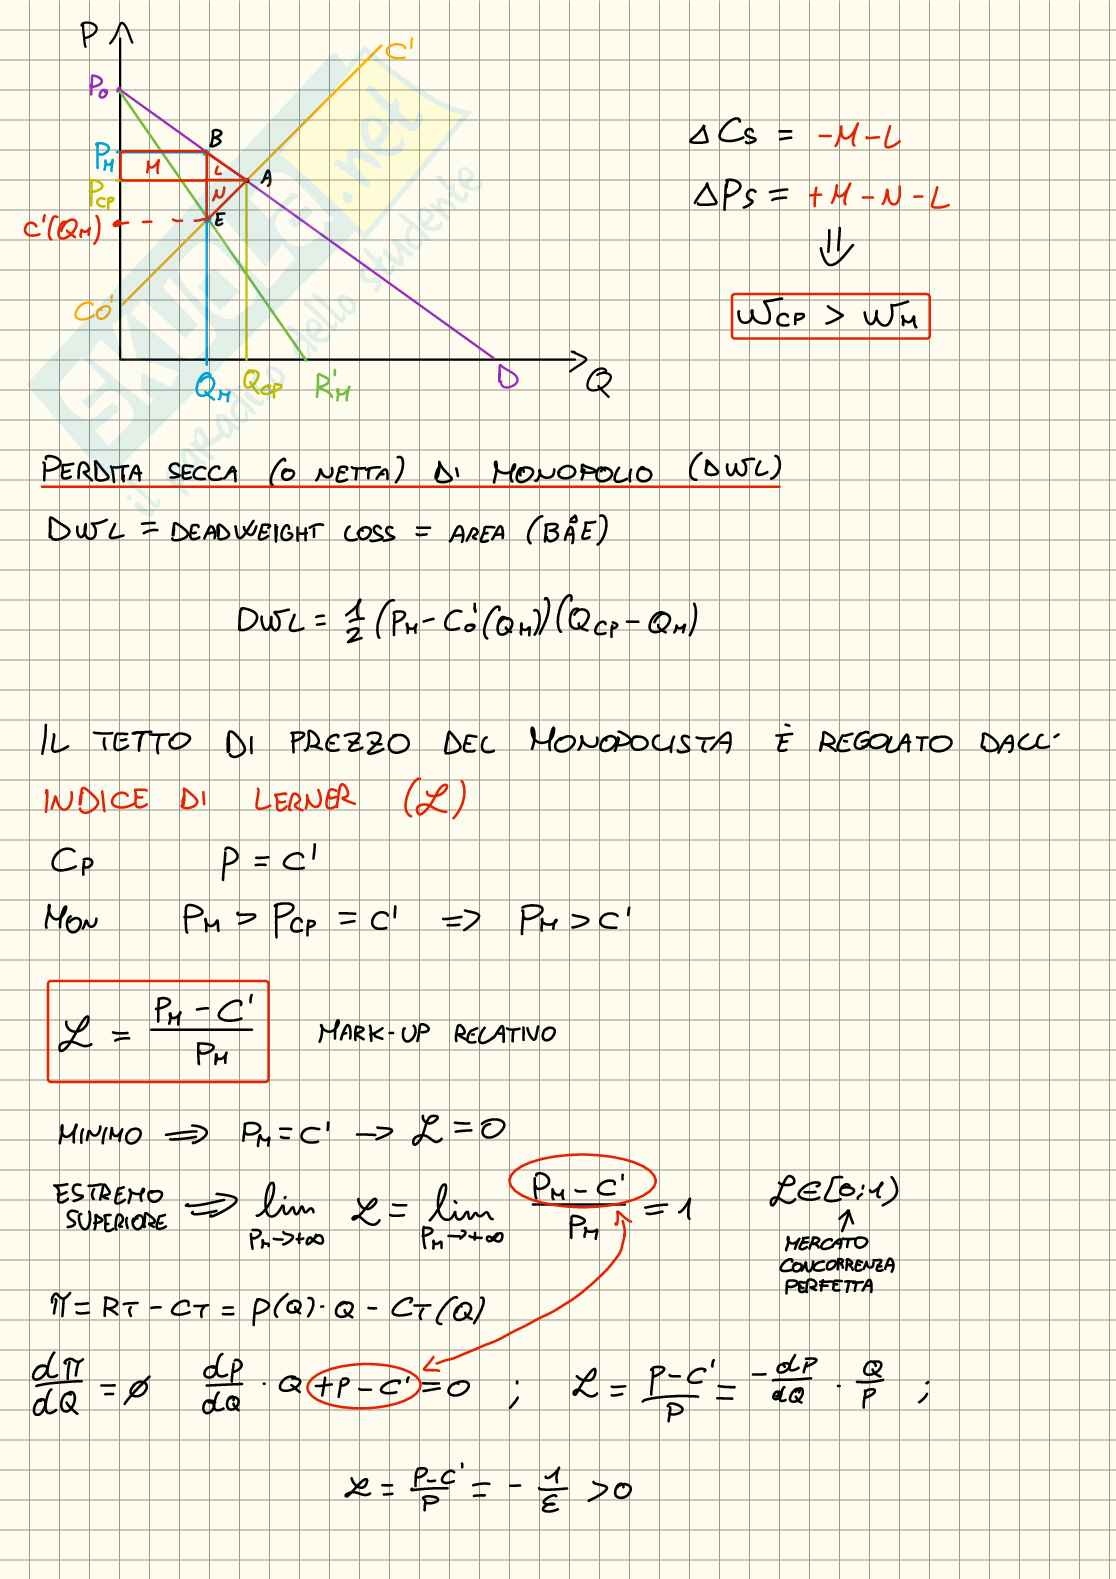 P
C'
P₀
B
P_M
M
L
A
P_CP
N
C'(Q_M)
E
C₀'
Q_M Q_CP R'_M D Q
ΔCs = -M-L
ΔPs = +M-N-L
⇓
W_CP > W_M
SKUOLA.net
il paradiso dello studente
PERDITA SECCA (O NETTA) DI MONOPOLIO (DWL)
DWL = DEADWEIGHT LOSS = AREA (BÂE)
DWL = 1/2 (P_M - C₀'(Q_M))(Q_CP - Q_M)
IL TETTO DI PREZZO DEL MONOPOLISTA È REGOLATO DALL'
INDICE DI LERNER (ℒ)
CP P = C'
MON P_M > P_CP = C' => P_M > C'
ℒ = (P_M - C')/P_M MARK-UP RELATIVO
MINIMO => P_M = C' → ℒ = 0
ESTREMO SUPERIORE => lim P_M→+∞ ℒ = lim P_M→+∞ (P_M - C')/P_M = 1 ℒ∈[0;1)
↑
MERCATO
CONCORRENZA
PERFETTA
π = RT - CT = P(Q)·Q - CT(Q)
dπ/dQ = ∅ dP/dQ · Q + P - C' = 0 ; ℒ = (P - C')/P = -dP/dQ · Q/P ;
ℒ = (P - C')/P = - 1/ε > 0